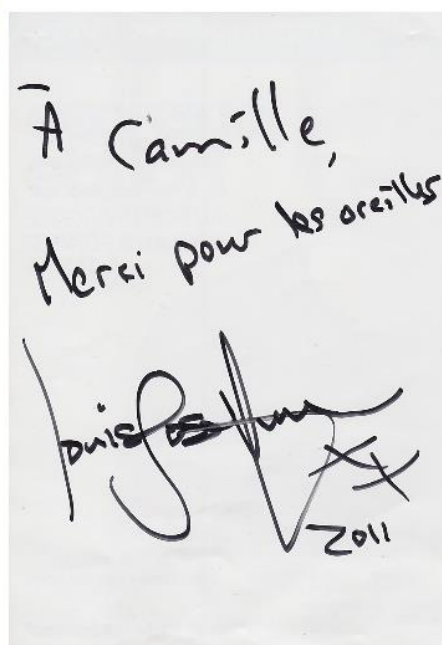 À Camille,
Merci pour les oreilles
XX
2011